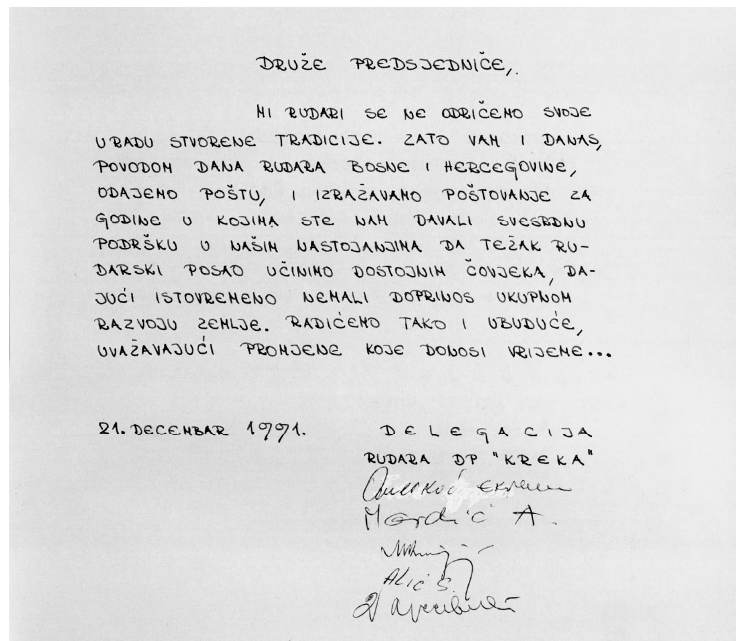 DRUŽE PREDSJEDNIČE,.
MI RUDARI SE NE ODRIČEMO SVOJE
U RADU STVORENE TRADICIJE. ZATO VAM I DANAS,
POVODOM DANA RUDARA BOSNE I HERCEGOVINE,
ODAJEMO POŠTU, I IZRAŽAVAMO POŠTOVANJE ZA
GODINE U KOJIMA STE NAM DAVALI SVESRDNU
PODRŠKU U NAŠIM NASTOJANJIMA DA TEŽAK RU-
DARSKI POSAO UČINIMO DOSTOJNIM ČOVJEKA, DA-
JUĆI ISTOVREMENO NEMALI DOPRINOS UKUPNOM
RAZVOJU ZEMLJE. RADIĆEMO TAKO I UBUDUĆE,
UVAŽAVAJUĆI PROMJENE KOJE DONOSI VRIJEME...
21. DECEMBAR 1991.
DELEGACIJA
RUDARA DP "KREKA"
Mardić A.
Alić S.